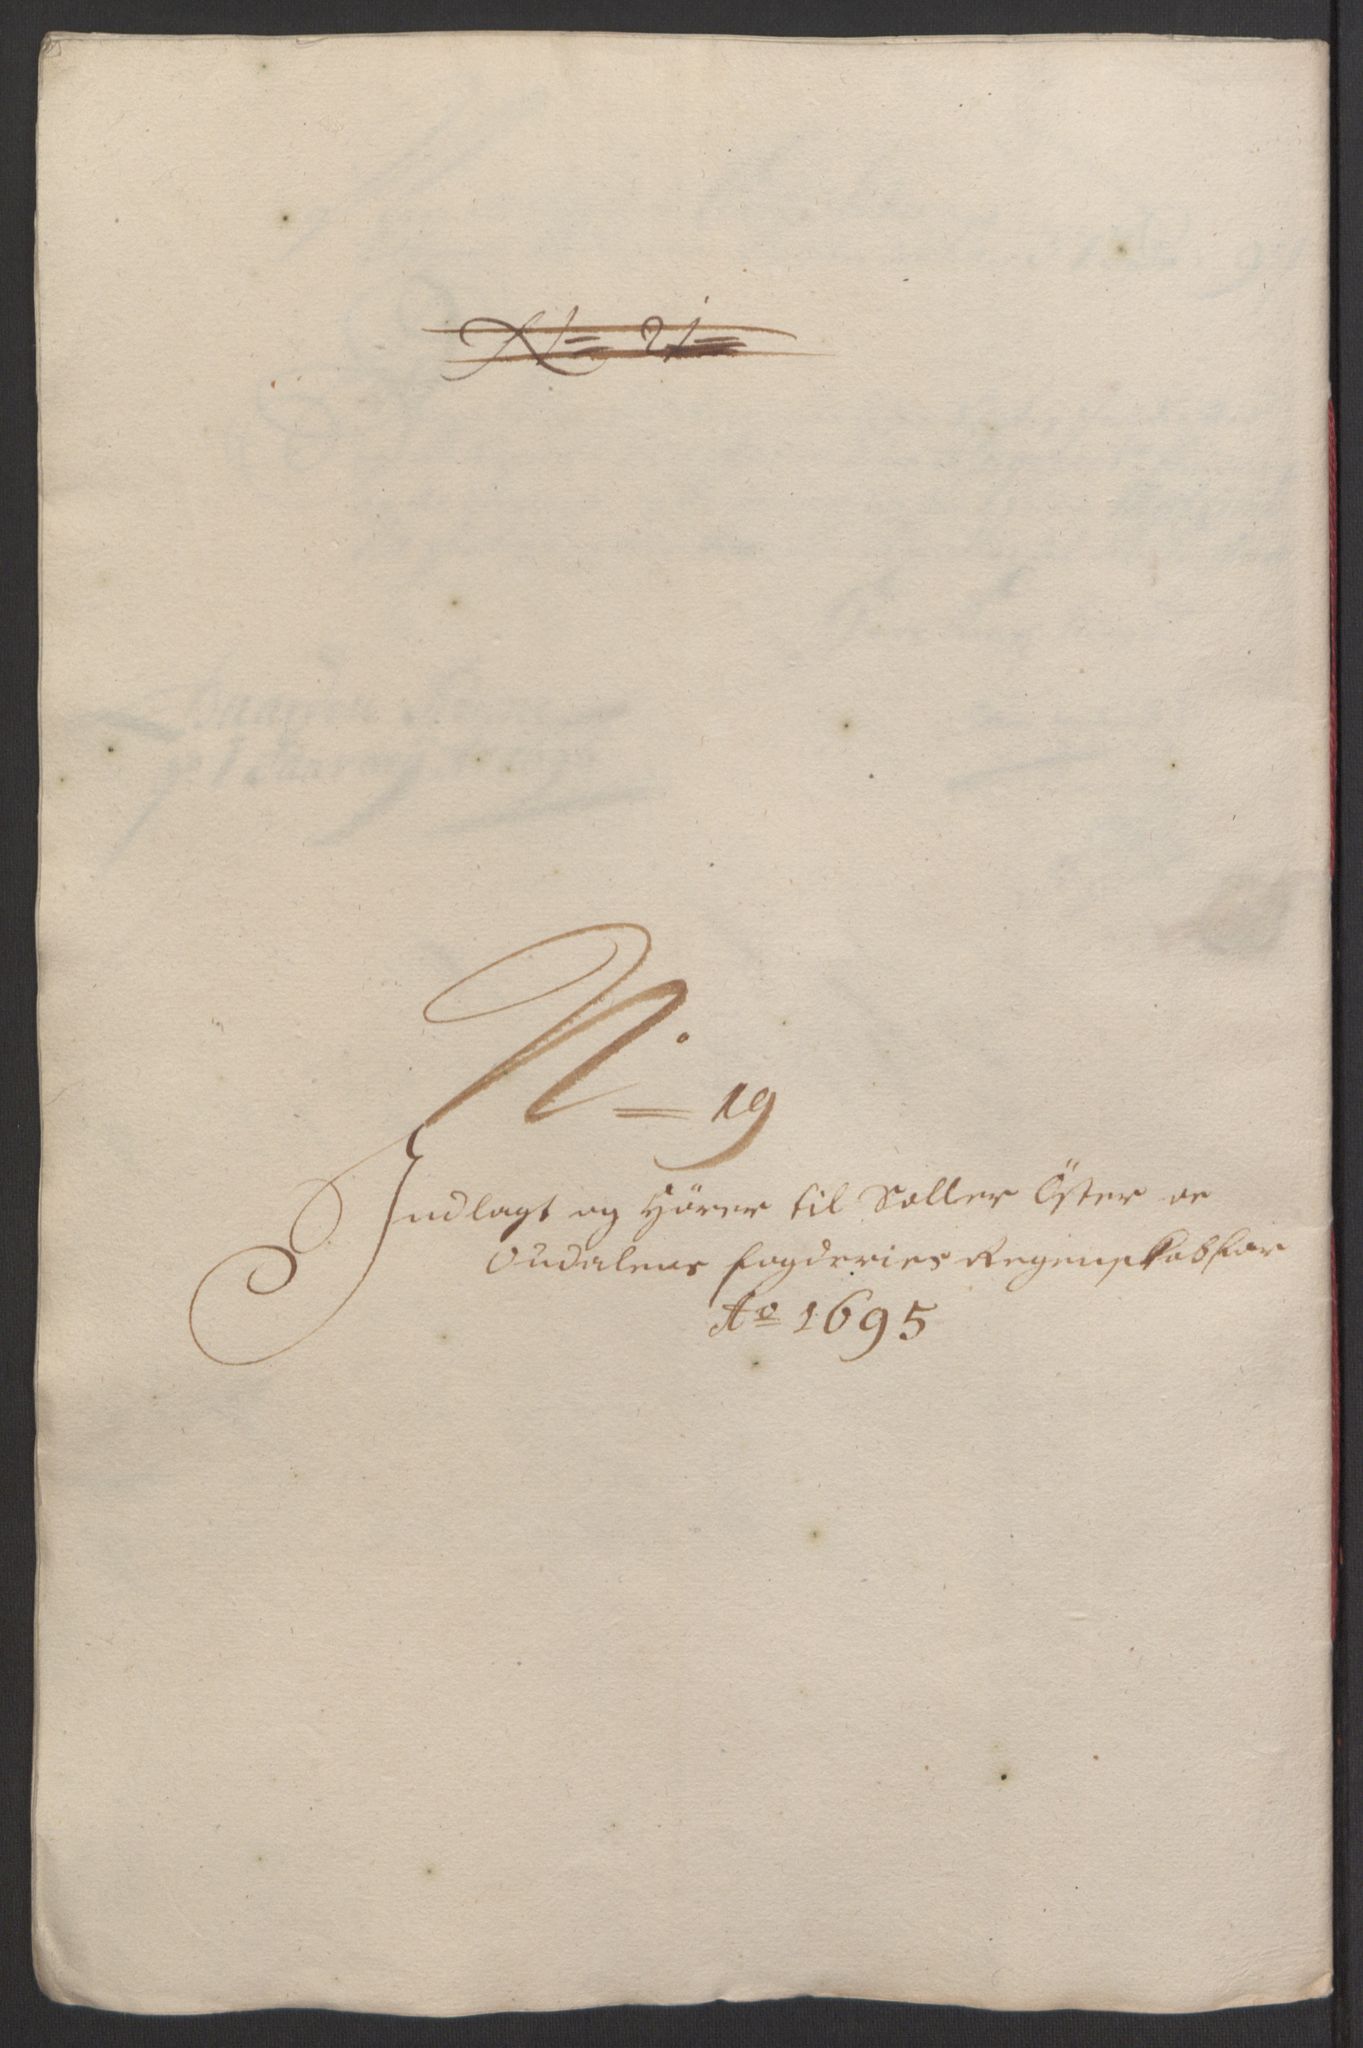 N= 21=
N. = 19
Indlagt og Hörer til Soller Öster oc
Oudalens fogderies Regenskab for
Ao 1695